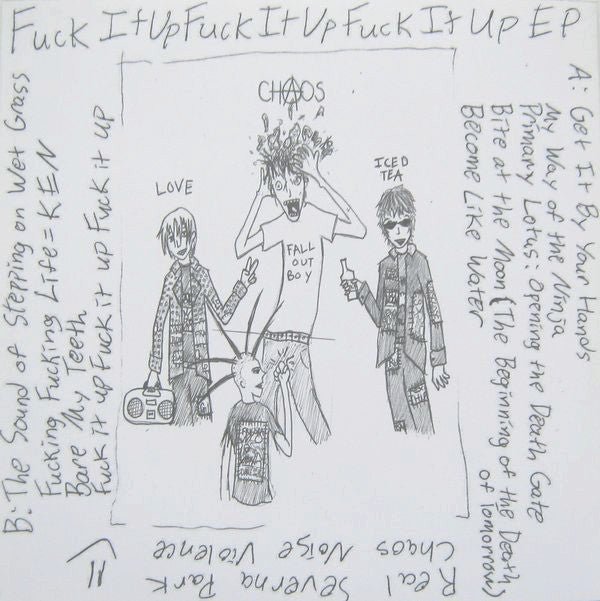 Fuck It Up Fuck It Up Fuck It Up EP
A: Get It By Your Hands
My Way of the Ninja
Primary Lotus: Opening the Death Gate
Bite at the Moon (The Beginning of the Death
of Tomorrow)
Become Like Water
CHAOS
LOVE
ICED
TEA
FALL
OUT
BOY
B: The Sound of Stepping on Wet Grass
Fucking Fucking Life = KEN
Bare My Teeth
Fuck it up Fuck it up Fuck it up
Real Severna Park
Chaos Noise Violence